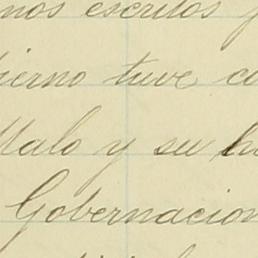 nos escritos
ierno tuve co
Malo y su h
Gobernacion